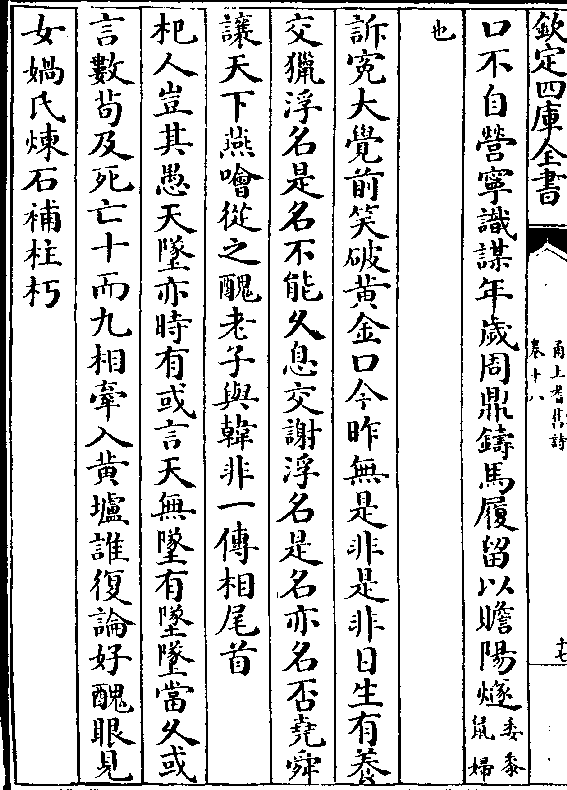 欽定四庫全書
甬上耆舊詩
卷十八
口不自營寧識謀年歲周鼎鑄馬履留以贍陽燧委黍
鼠婦
也
訴寃大覺前笑破黃金口今昨無是非是非日生有養
交獵浮名是名不能久息交謝浮名是名亦名否堯舜
讓天下燕噲從之醜老子與韓非一傳相尾首
杞人豈其愚天墜亦時有或言天無墜有墜墜當久或
言數苟及死亡十而九相牽入黃壚誰復論好醜眼見
女媧氏煉石補柱朽